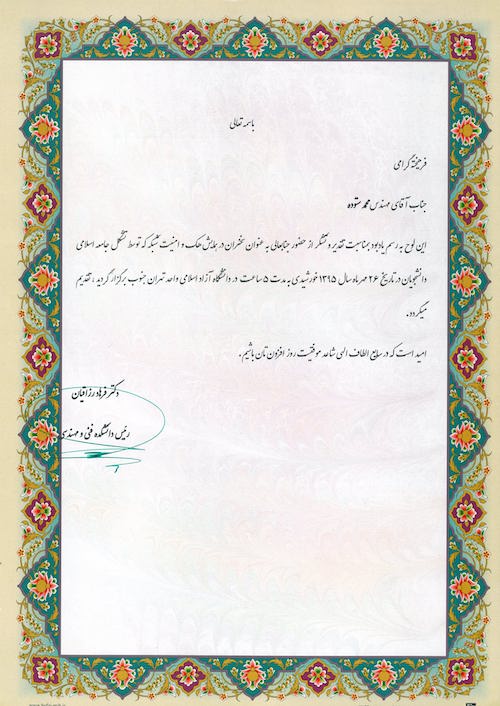 باسمه تعالی
فرهیخته گرامی
جناب آقای مهندس محمد ستوده
این لوح به رسم یادبود بمناسبت تقدیر و تشکر از حضور جنابعالی به عنوان سخنران در همایش هک و امنیت شبکه که توسط تشکل جامعه اسلامی
دانشجویان در تاریخ ۲۶ مهر ماه سال ۱۳۹۵ خورشیدی به مدت ۵ ساعت در دانشگاه آزاد اسلامی واحد تهران جنوب برگزار گردید ، تقدیم
میگردد.
امید است که در سایه الطاف الهی شاهد موفقیت روز افزون تان باشیم .
دکتر فرهاد رزاقیان
رئیس دانشکده فنی و مهندسی